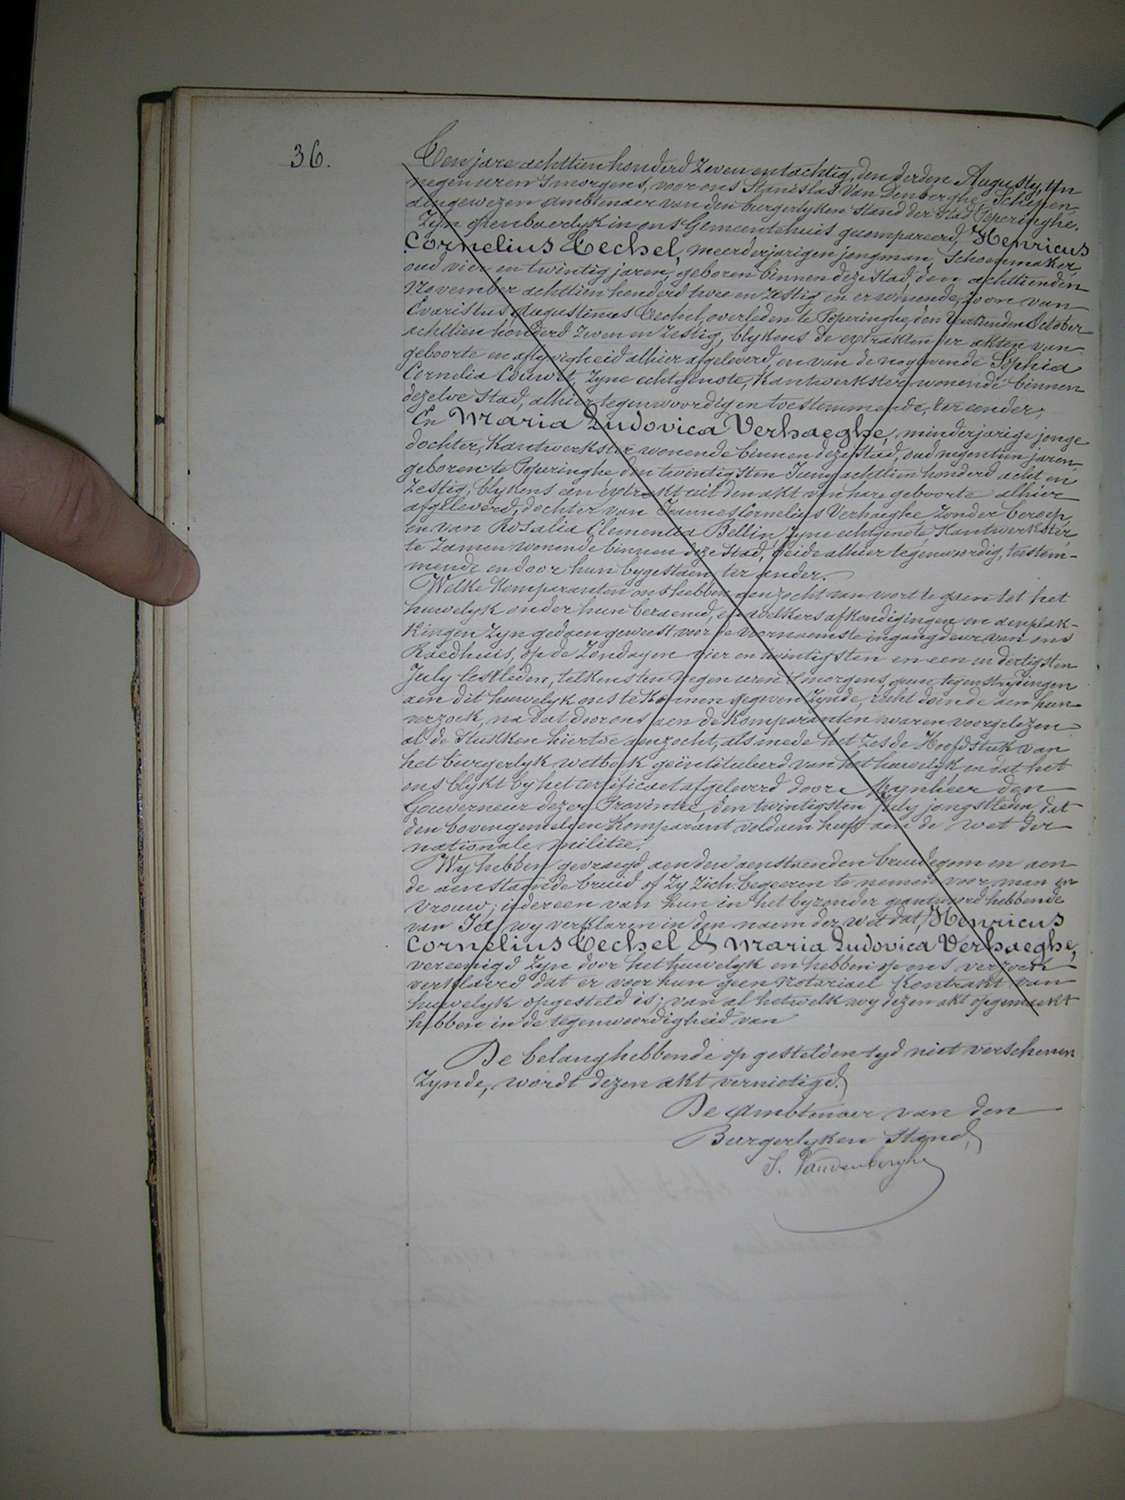 36.
Ten jare achttien honderd zeven en tachtig, den derden Augusty, ten
negen uren 's morgens, voor ons Stanislas Van Denberghe, Schepen,
aengewezen ambtenaer van den burgerlyken stand der Stad Poperinghe.
Zyn openbaerlyk in ons Gemeentehuis gecompareerd, Henricus
Cornelius Cechel, meerderjarigen jongman, Schoenmaker,
oud vier en twintig jaren, geboren binnen deze stad, den achttienden
November achttien honderd twee en zestig en er wonende, zoon van
Evaristus Augustinus Cechel, overleden te Poperinghe, den October
achttien honderd zeven en zestig, blykens de extrakten der akten van
geboorte en aflyvigheid alhier afgeleverd, en van de nog levende Sophia
Cornelia Couwet, zyne echtgenote, Kantwerkster wonende binnen
dezelve Stad, alhier tegenwoordig en toestemmende, ter eender;
En Maria Ludovica Verhaeghe, minderjarige jonge
dochter, Kantwerkster wonende binnen deze stad, oud negentien jaren,
geboren te Poperinghe den twintigsten Juny achttien honderd acht en
zestig, blykens een extrakt uit den akt van hare geboorte alhier
afgeleverd, dochter van Joannes Cornelius Verhaeghe zonder beroep,
en van Rosalia Clementia Bellin zyne echtgenote Kantwerkster
te zamen wonende binnen deze Stad, beide alhier tegenwoordig, toestem-
mende en door hun bygestaen, ter ander.
Welke Komparanten ons hebben aenzocht van voort te gaen tot het
huwelyk onder hun beraemd, en welkers afkondigingen en aenplak-
kingen zyn gedaen geweest voor de voornaemste ingangdeur van ons
Raedhuis, op de Zondagen vier en twintigsten en een en dertigsten
July lestleden, telkens ten negen uren 's morgens, geene tegenstrydingen
aen dit huwelyk ons te kennen gegeven zynde, recht doende aen hun
verzoek, na dat door ons aen de Komparanten waren voorgelezen
al de stukken hiertoe aenzocht, alsmede het zesde Hoofdstuk van
het burgerlyk wetboek geïntituleerd van het huwelyk en dat het
ons blykt by het certificaet afgeleverd door Mynheer den
Gouverneur dezer Provintie, den twintigsten July jongstleden, dat
den bovengemelden Komparant voldaen heeft aen de wet der
nationale militie.
Wy hebben gevraegd aen den aenstaenden bruidegom en aen
de aenstaende bruid of zy zich begeeren te nemen voor man en
vrouw; iedereen van hun in het byzonder geantwoord hebbende
van Ja, wy verklaren in den naem der wet dat, Henricus
Cornelius Cechel & Maria Ludovica Verhaeghe,
vereenigd zyn door het huwelyk en hebben op ons verzoek
verklaerd dat er voor hun geen notariael Kontrakt van
huwelyk opgesteld is; van al hetwelk wy dezen akt opgemaekt
hebben in de tegenwoordigheid van
De belanghebbende op gestelden tyd niet verschenen
zynde, wordt dezen akt vernietigd.
De ambtenaer van den
Burgerlyken Stand,
S. Vandenberghe